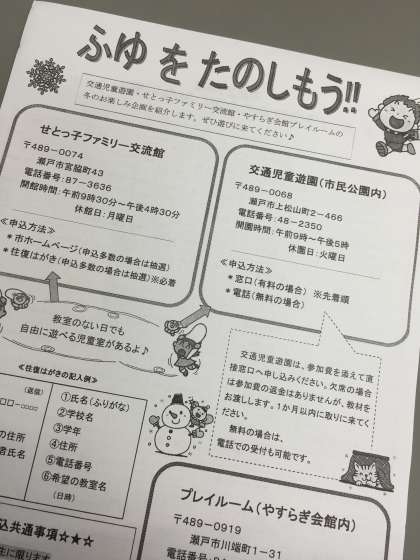 ふゆ を たのしもう!!
交通児童遊園・せとっ子ファミリー交流館・やすらぎ会館プレイルームの
冬のお楽しみ企画を紹介します。ぜひ遊びに来てください♪
せとっ子ファミリー交流館
〒489-0074
瀬戸市宮脇町43
電話番号:87-3636
開館時間:午前9時30分~午後4時30分
休館日:月曜日
≪申込方法≫
*市ホームページ(申込多数の場合は抽選)
*往復はがき(申込多数の場合は抽選)※必着
交通児童遊園(市民公園内)
〒489-0068
瀬戸市上松山町2-466
電話番号:48-2350
開園時間:午前9時~午後5時
休園日:火曜日
≪申込方法≫
*窓口(有料の場合) ※先着順
*電話(無料の場合)
教室のない日でも
自由に遊べる児童室があるよ♪
交通児童遊園は、参加費を添えて直
接窓口へ申し込みください。欠席の場合
は参加費の返金はありませんが、教材を
お渡しします。1か月以内に取りに来てく
ださい。
無料の場合は、
電話での受付も可能です。
≪往復はがきの記入例≫
(返信)
□□-□□□□
の住所
者氏名
①氏名(ふりがな)
②学校名
③学年
④住所
⑤電話番号
⑥希望の教室名
(日時)
プレイルーム(やすらぎ会館内)
〒489-0919
瀬戸市川端町1-31
込共通事項☆☆☆